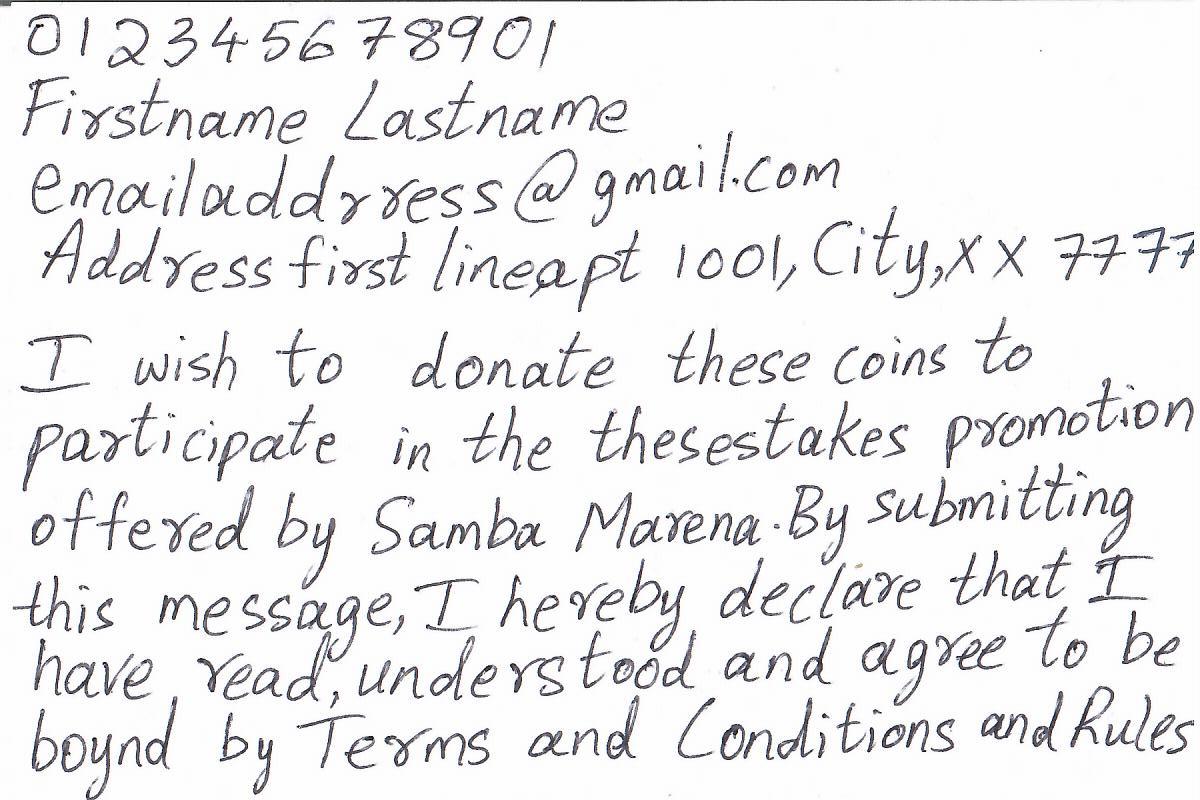 012345678901
Firstname Lastname
emailaddrress@gmail.com
Address first lineapt 1001, City, XX 7777
I wish to donate these coins to
participate in the thesestakes promotion
offered by Samba Marena. By submitting
this message, I hereby declare that I
have read, understood and agree to be
boynd by Terms and Conditions and Rules